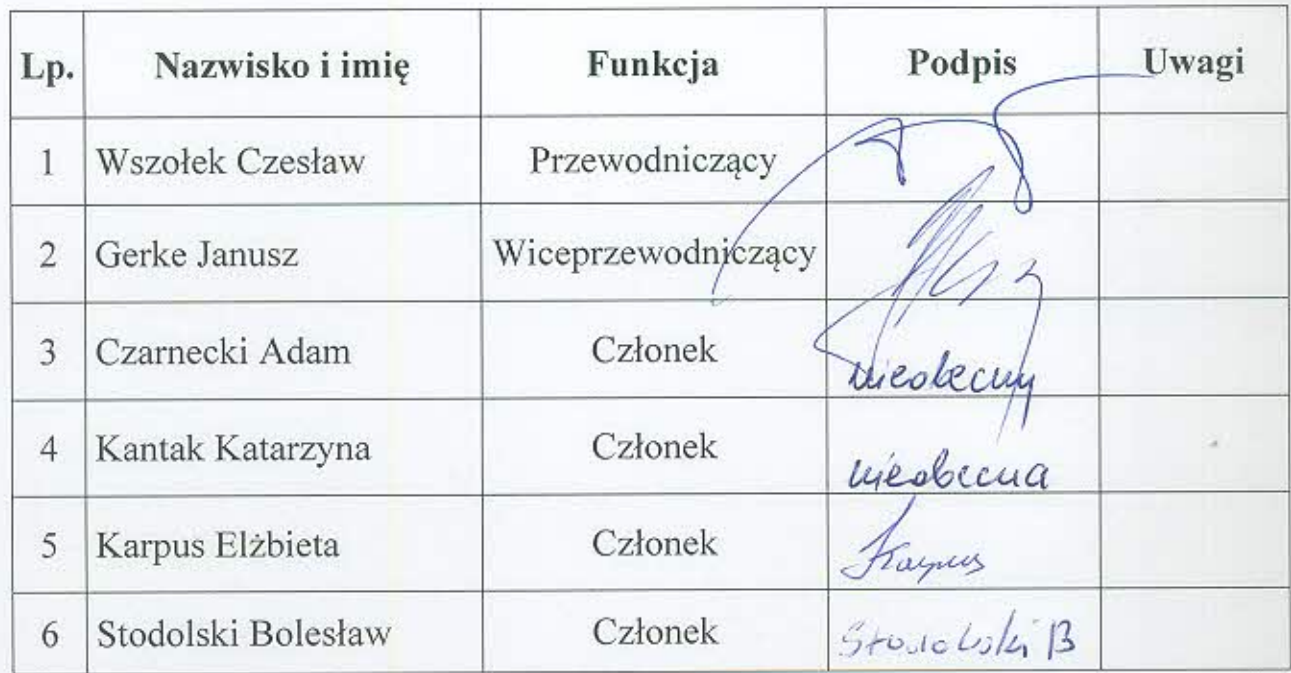 Lp. Nazwisko i imię Funkcja Podpis Uwagi
1 Wszołek Czesław Przewodniczący
2 Gerke Janusz Wiceprzewodniczący
3 Czarnecki Adam Członek nieobecny
4 Kantak Katarzyna Członek nieobecna
5 Karpus Elżbieta Członek Karpus
6 Stodolski Bolesław Członek Stodolski B